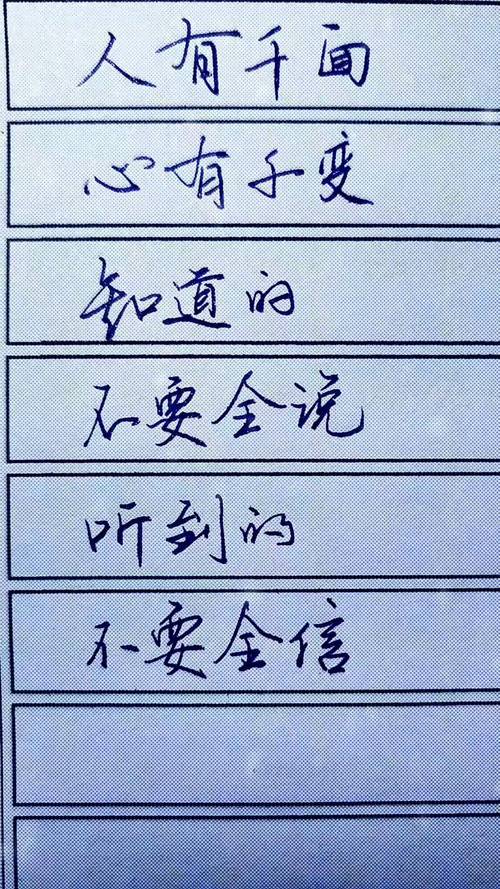 人有千面
心有千变
知道的
不要全说
听到的
不要全信